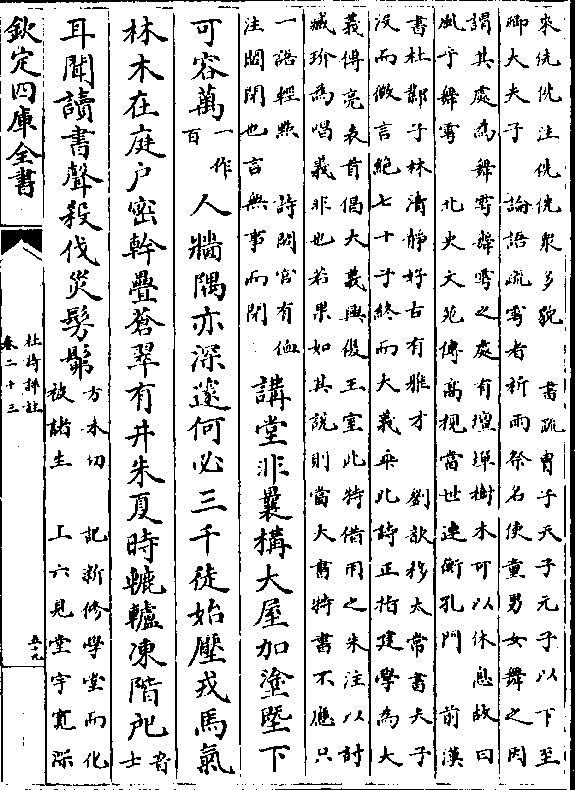 來侁侁注侁侁衆多貌　書疏胄子天子元子以下至
卿大夫子　論語疏雩者祈雨祭名使童男女舞之因
謂其處為舞雩舞雩之處有壇墠樹木可以休息故曰
風乎舞雩　北史文苑傳高視當世連衡孔門　前漢
書杜鄴子林清靜好古有雅才　劉歆移太常書夫子
没而微言絶七十子終而大義乖此詩正指建學為大
義傅亮表首倡大義興復王室此特借用之朱注以討
臧玠為唱義非也若果如其說則當大書特書不應只
一語輕點　詩閟宫有侐
注閟閉也言無事而閉
講堂非曩構大屋加塗墍下
可容萬一作百人牆隅亦深邃何必三千徒始壓戎馬氣
林木在庭户密幹疊蒼翠有井朱夏時轆轤凍階戺音士
耳聞讀書聲殺伐災髣髴方未切　記新修學堂而化
被諸生　上六見堂宇寬際
欽定四庫全書
杜詩詳註
卷二十三
五十九